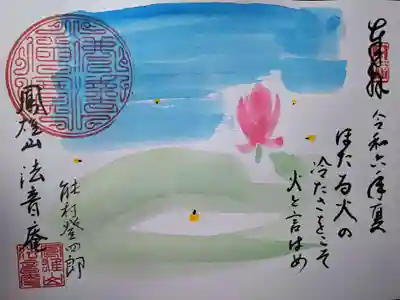 奉拝 令和六年夏
ほたる火の
冷たさをこそ
火と言はめ
能村登四郎
鳳雄山 法音庵